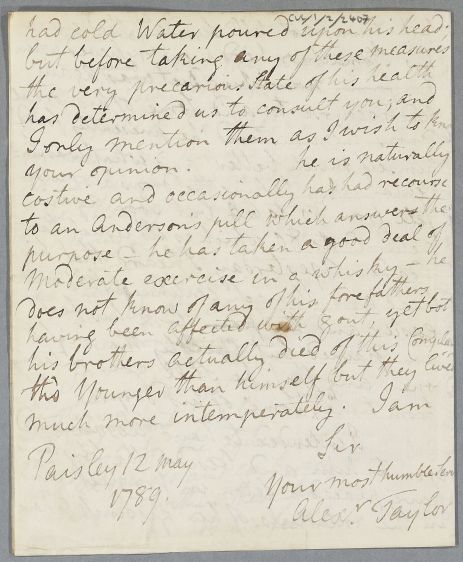 CUL/1/2/2407
had cold Water poured upon his head;
but before taking any of these measures
the very precarious State of his health
has determined us to consult you, and
I only mention them as I wish to kn
your opinion. he is naturally
costive and occasionally has had recourse
to an Anderson's pill which answers the
purpose – he has taken a good deal of
moderate exercise in a whisky – he
does not know of any of his forefathers
having been affected with gout yet bot
his brothers actually died of this Complai
tho Younger than himself but they lived
much more intemperately. I am
Sir
Paisley 12 may
1789.
Your most humble Serv
Alexr Taylor